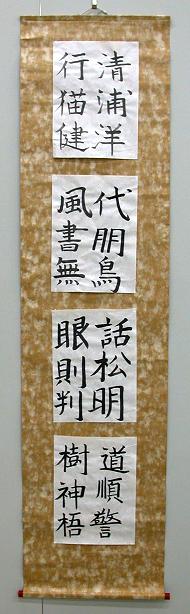 清浦洋
行猫健
代朋鳥
風書無
話松明
眼則判
道順警
樹神梧